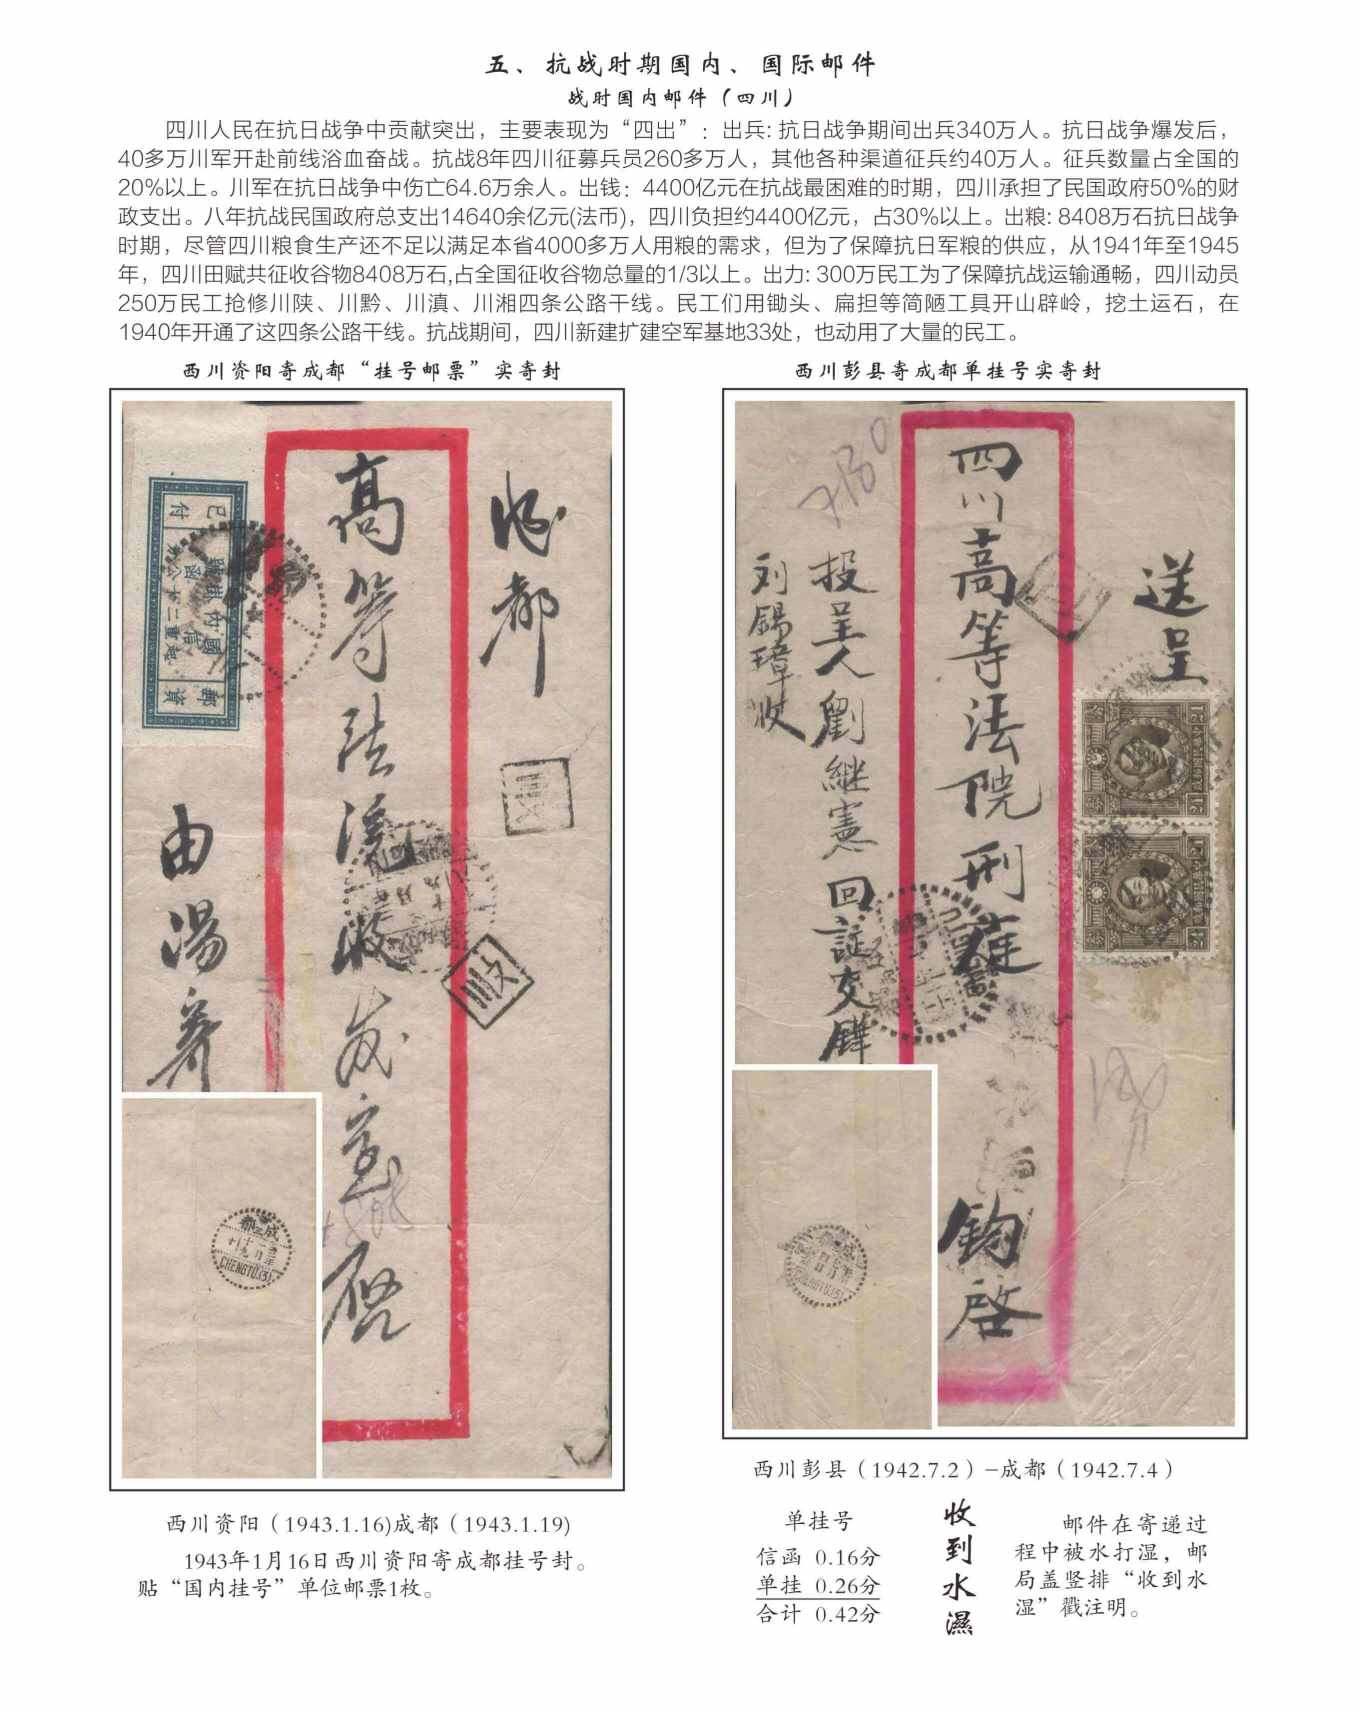 五、抗战时期国内、国际邮件
战时国内邮件（四川）
四川人民在抗日战争中贡献突出，主要表现为“四出”：出兵:抗日战争期间出兵340万人。抗日战争爆发后，
40多万川军开赴前线浴血奋战。抗战8年四川征募兵员260多万人，其他各种渠道征兵约40万人。征兵数量占全国的
20%以上。川军在抗日战争中伤亡64.6万余人。出钱：4400亿元在抗战最困难的时期，四川承担了民国政府50%的财
政支出。八年抗战民国政府总支出14640余亿元(法币)，四川负担约4400亿元，占30%以上。出粮:8408万石抗日战争
时期，尽管四川粮食生产还不足以满足本省4000多万人用粮的需求，但为了保障抗日军粮的供应，从1941年至1945
年，四川田赋共征收谷物8408万石,占全国征收谷物总量的1/3以上。出力:300万民工为了保障抗战运输通畅，四川动员
250万民工抢修川陕、川黔、川滇、川湘四条公路干线。民工们用锄头、扁担等简陋工具开山辟岭，挖土运石，在
1940年开通了这四条公路干线。抗战期间，四川新建扩建空军基地33处，也动用了大量的民工。
西川资阳寄成都“挂号邮票”实寄封
成都
高等法院收发室启
已付
國内掛號
信函
郵資
由湯寄
成都
CHENGTU.(3)
西川资阳（1943.1.16)成都（1943.1.19)
1943年1月16日西川资阳寄成都挂号封。
贴“国内挂号”单位邮票1枚。
西川彭县寄成都单挂号实寄封
送呈
四川高等法院刑庭
鈞啓
投呈人劉継憲 回証交鏵
刘錫璋收
西川彭县（1942.7.2）–成都（1942.7.4）
单挂号
信函 0.16分
单挂 0.26分
合计 0.42分
收到水濕
邮件在寄递过
程中被水打湿，邮
局盖竖排“收到水
湿”戳注明。